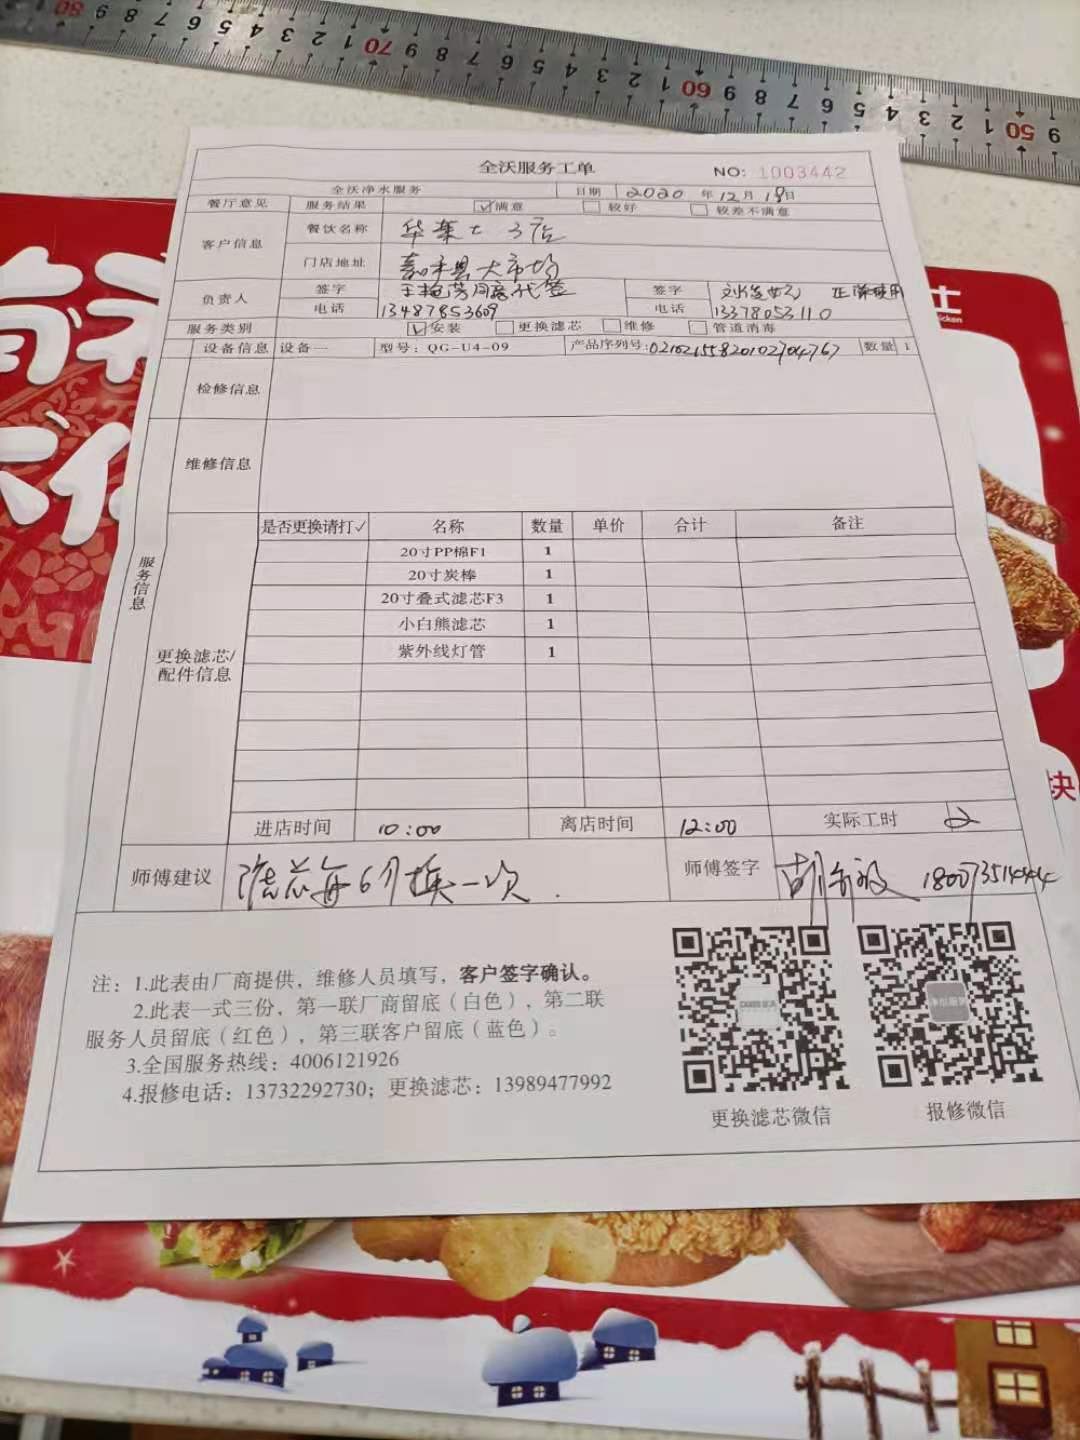 全沃服务工单 NO: 1003442
全沃净水服务 日期 2020 年 12 月 18 日
餐厅意见 服务结果 ☑满意 □较好 □较差不满意
客户信息 餐饮名称 华莱士 3店
门店地址 嘉禾县大市场
负责人 签字 签字 正常使用
电话 13487853609 电话 13378053110
服务类别 ☑安装 □更换滤芯 □维修 □管道消毒
设备信息 设备一 型号: QG-U4-09 产品序列号: 数量 1
检修信息
维修信息
服务信息
是否更换请打✓ 名称 数量 单价 合计 备注
20寸PP棉F1 1
20寸炭棒 1
20寸叠式滤芯F3 1
小白熊滤芯 1
紫外线灯管 1
更换滤芯/
配件信息
进店时间 10:00 离店时间 12:00 实际工时 2
师傅建议 滤芯每6个换一次. 师傅签字
注: 1.此表由厂商提供，维修人员填写，客户签字确认。
2.此表一式三份，第一联厂商留底（白色），第二联
服务人员留底（红色），第三联客户留底（蓝色）。
3.全国服务热线: 4006121926
4.报修电话: 13732292730; 更换滤芯: 13989477992
更换滤芯微信 报修微信